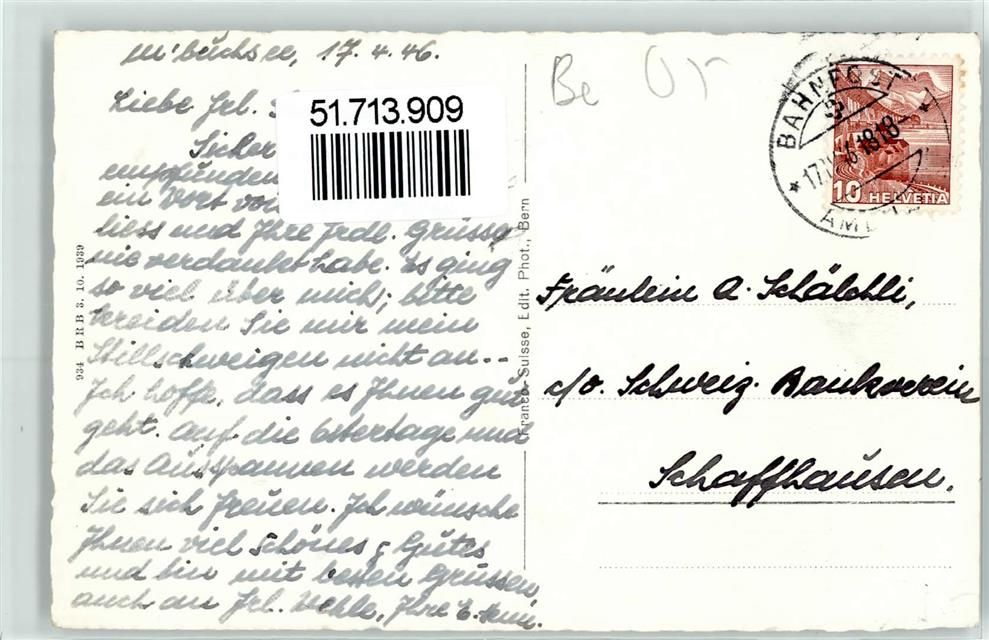 m'buchsee, 17.4.46.
Liebe Frl.
51.713.909
Sicher
empfunden
ein Wort von
liess und Ihre frdl. Grüsse
nie verdankt habe. Es ging
so viel über mich; bitte
kreiden Sie mir mein
Stillschweigen nicht an --
Ich hoffe, dass es Ihnen gut
geht. Auf die Ostertage und
das Ausspannen werden
Sie sich freuen. Ich wünsche
Ihnen viel Schönes & Gutes
und bin mit besten Grüssen,
auch an Frl. Ihre E.
934 BRB 3. 10. 1939
Franco-Suisse, Edit. Phot., Bern
Be
BAHNPOST
1818-
AMB
10 HELVETIA
Fräulein A. Schälchli,
c/o. Schweiz. Bankverein
Schaffhausen.